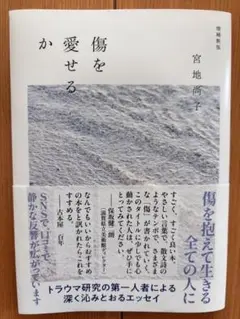 増補新版
傷を
愛せる
か
宮地尚子
傷を抱えて生きる
全ての人に
すごく、すごく良い本。
やさしい言葉で、散文詩の
ようなテンポで、さまざま
な「傷」が書かれていく。
このタイトルに少しでも心
動かされた人は、ぜひ手に
とってみてください。
なんでもいいからおすすめ
の本をと訊かれたらこれを
すすめる。
SNSで、口コミで、
静かな反響が広がっています
トラウマ研究の第一人者による
深く沁みとおるエッセイ